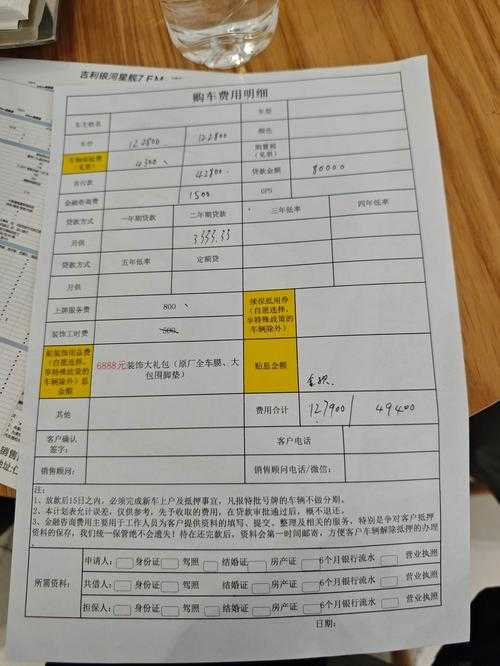 吉利银河星舰7 EM
购车费用明细
车主姓名 车型
车价 122800 122800 颜色
车辆保险费 4300 购置税
(免票)
首付款 42800 贷款金额 80000
金融咨询费 1500 GPS
贷款方式 一年期贷款 二年期贷款 三年低率 四年低率
月供 3333.33
贷款方式 五年低率 定额贷
月供
上牌服务费 800 续保抵用券
(自愿选择,
享特殊政策的
车辆除外)
装饰工时费
(自愿选择,
享特殊政策的
车辆除外)总
金额
6888元装饰大礼包(原厂全车膜、大
包围脚垫)
贴息金额
其他 费用合计 127900 49400
客户确认
签字:
客户电话
销售顾问: 销售顾问电话/微信:
注:
1、放款后15日之内,必须完成新车上户及抵押事宜,凡报特批号牌的车辆不做分期。
2、本计划表允许误差,仅供参考。先予收取的费用,在贷款审批通过后,概不退还。
3、金融咨询费用主要用于工作人员为客户提供资料的填写、提交、整理及相关的服务。特别是争对客户抵押
资料的保存,我们统一保管绝不会遗失!待在还完款后,资料会第一时间邮寄,方便客户车辆解除抵押的办理
所需资料:
申请人: 身份证 驾照 结婚证 房产证 6个月银行流水 营业执照
共借人: 身份证 驾照 结婚证 房产证 6个月银行流水 营业执照
担保人: 身份证 驾照 结婚证 房产证 6个月银行流水 营业执照
日期: